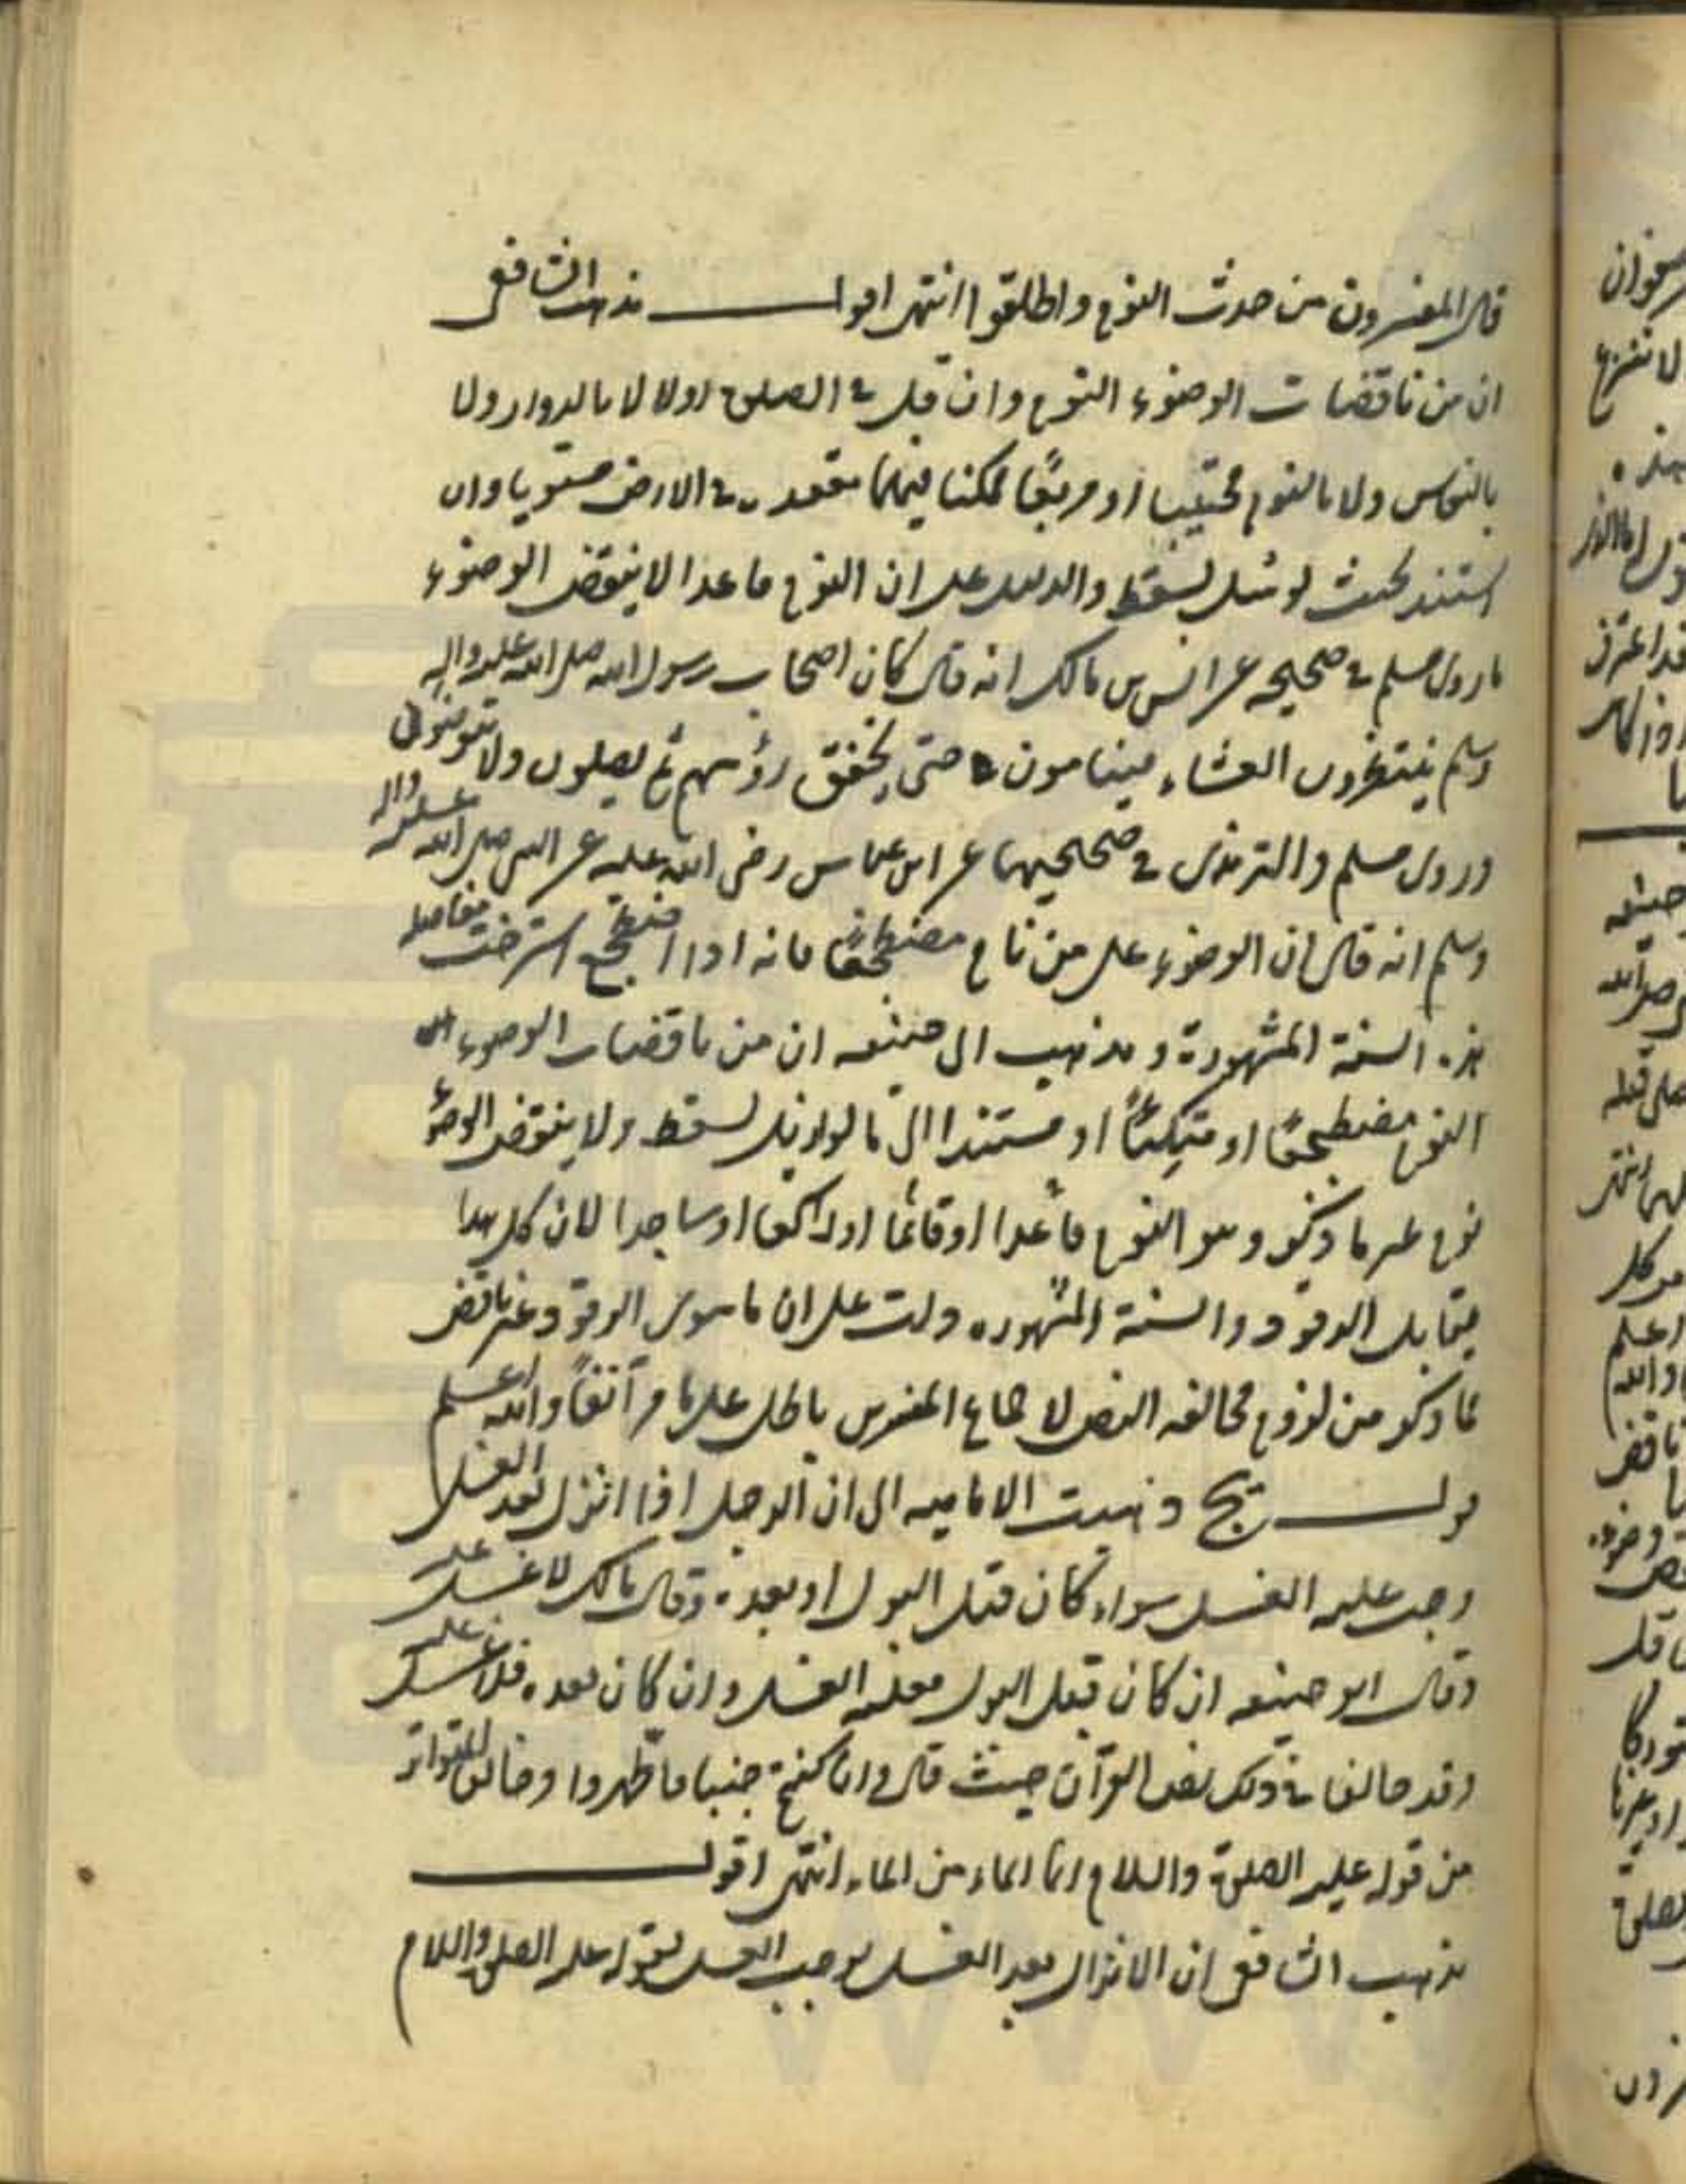 قال المفسرون من حدث النوم واطلقوا انتهى اقول مذهب الشافعي
ان من ناقضات الوضوء النوم وان قل في الصلوة اولا لا بالدوار ولا
بالنعاس ولا بالنوم محتبيا او مربعا ممكنا فيهما مقعده في الارض مستويا وان
استند بحيث لو سل لسقط والدليل على ان النوم قاعدا لا ينقض الوضوء
ما روى مسلم في صحيحه عن انس بن مالك انه قال كان اصحاب رسول الله صلى الله عليه واله
وسلم ينتظرون العشاء فينامون حتى يخفق رؤسهم ثم يصلون ولا يتوضؤن
وروى مسلم والترمذى في صحيحيهما عن ابن عباس رضى الله عليه عن النبي صلى الله عليه واله
وسلم انه قال ان الوضوء على من نام مضطجعا فانه اذا اضطجع استرخت مفاصله
هذه السنة المشهورة و مذهب ابى حنيفه ان من ناقضات الوضوء
النوم مضطجعا او متكيئا او مستندا الى ما لو ازيل لسقط ولا ينقض الوضوء
نوم غير ما ذكر وهو النوم قاعدا او قائما او راكعا او ساجدا لان كل هذا
يقابل الرقود والسنة المشهوره دلت على ان ما سوى الرقود غير ناقض
فما ذكر من لزوم مخالفه النص لاجماع المفسرين باطل على ما مر آنفا والله اعلم
قولـــه يج ذهبت الاماميه الى ان الرجل اذا انزل بعد الغسل
وجب عليه الغسل سواء كان قبل البول او بعده وقال مالك لا غسل عليه
وقال ابو حنيفه ان كان قبل البول فعليه الغسل وان كان بعده فلا غسل عليه
وقد خالفا في ذلك نص القرآن حيث قال وان كنتم جنبا فاطهروا وخالف المتواتر
من قوله عليه الصلوة والسلام انما الماء من الماء انتهى اقول
مذهب الشافعى ان الانزال بعد الغسل يوجب الغسل لقوله عليه الصلوة والسلام